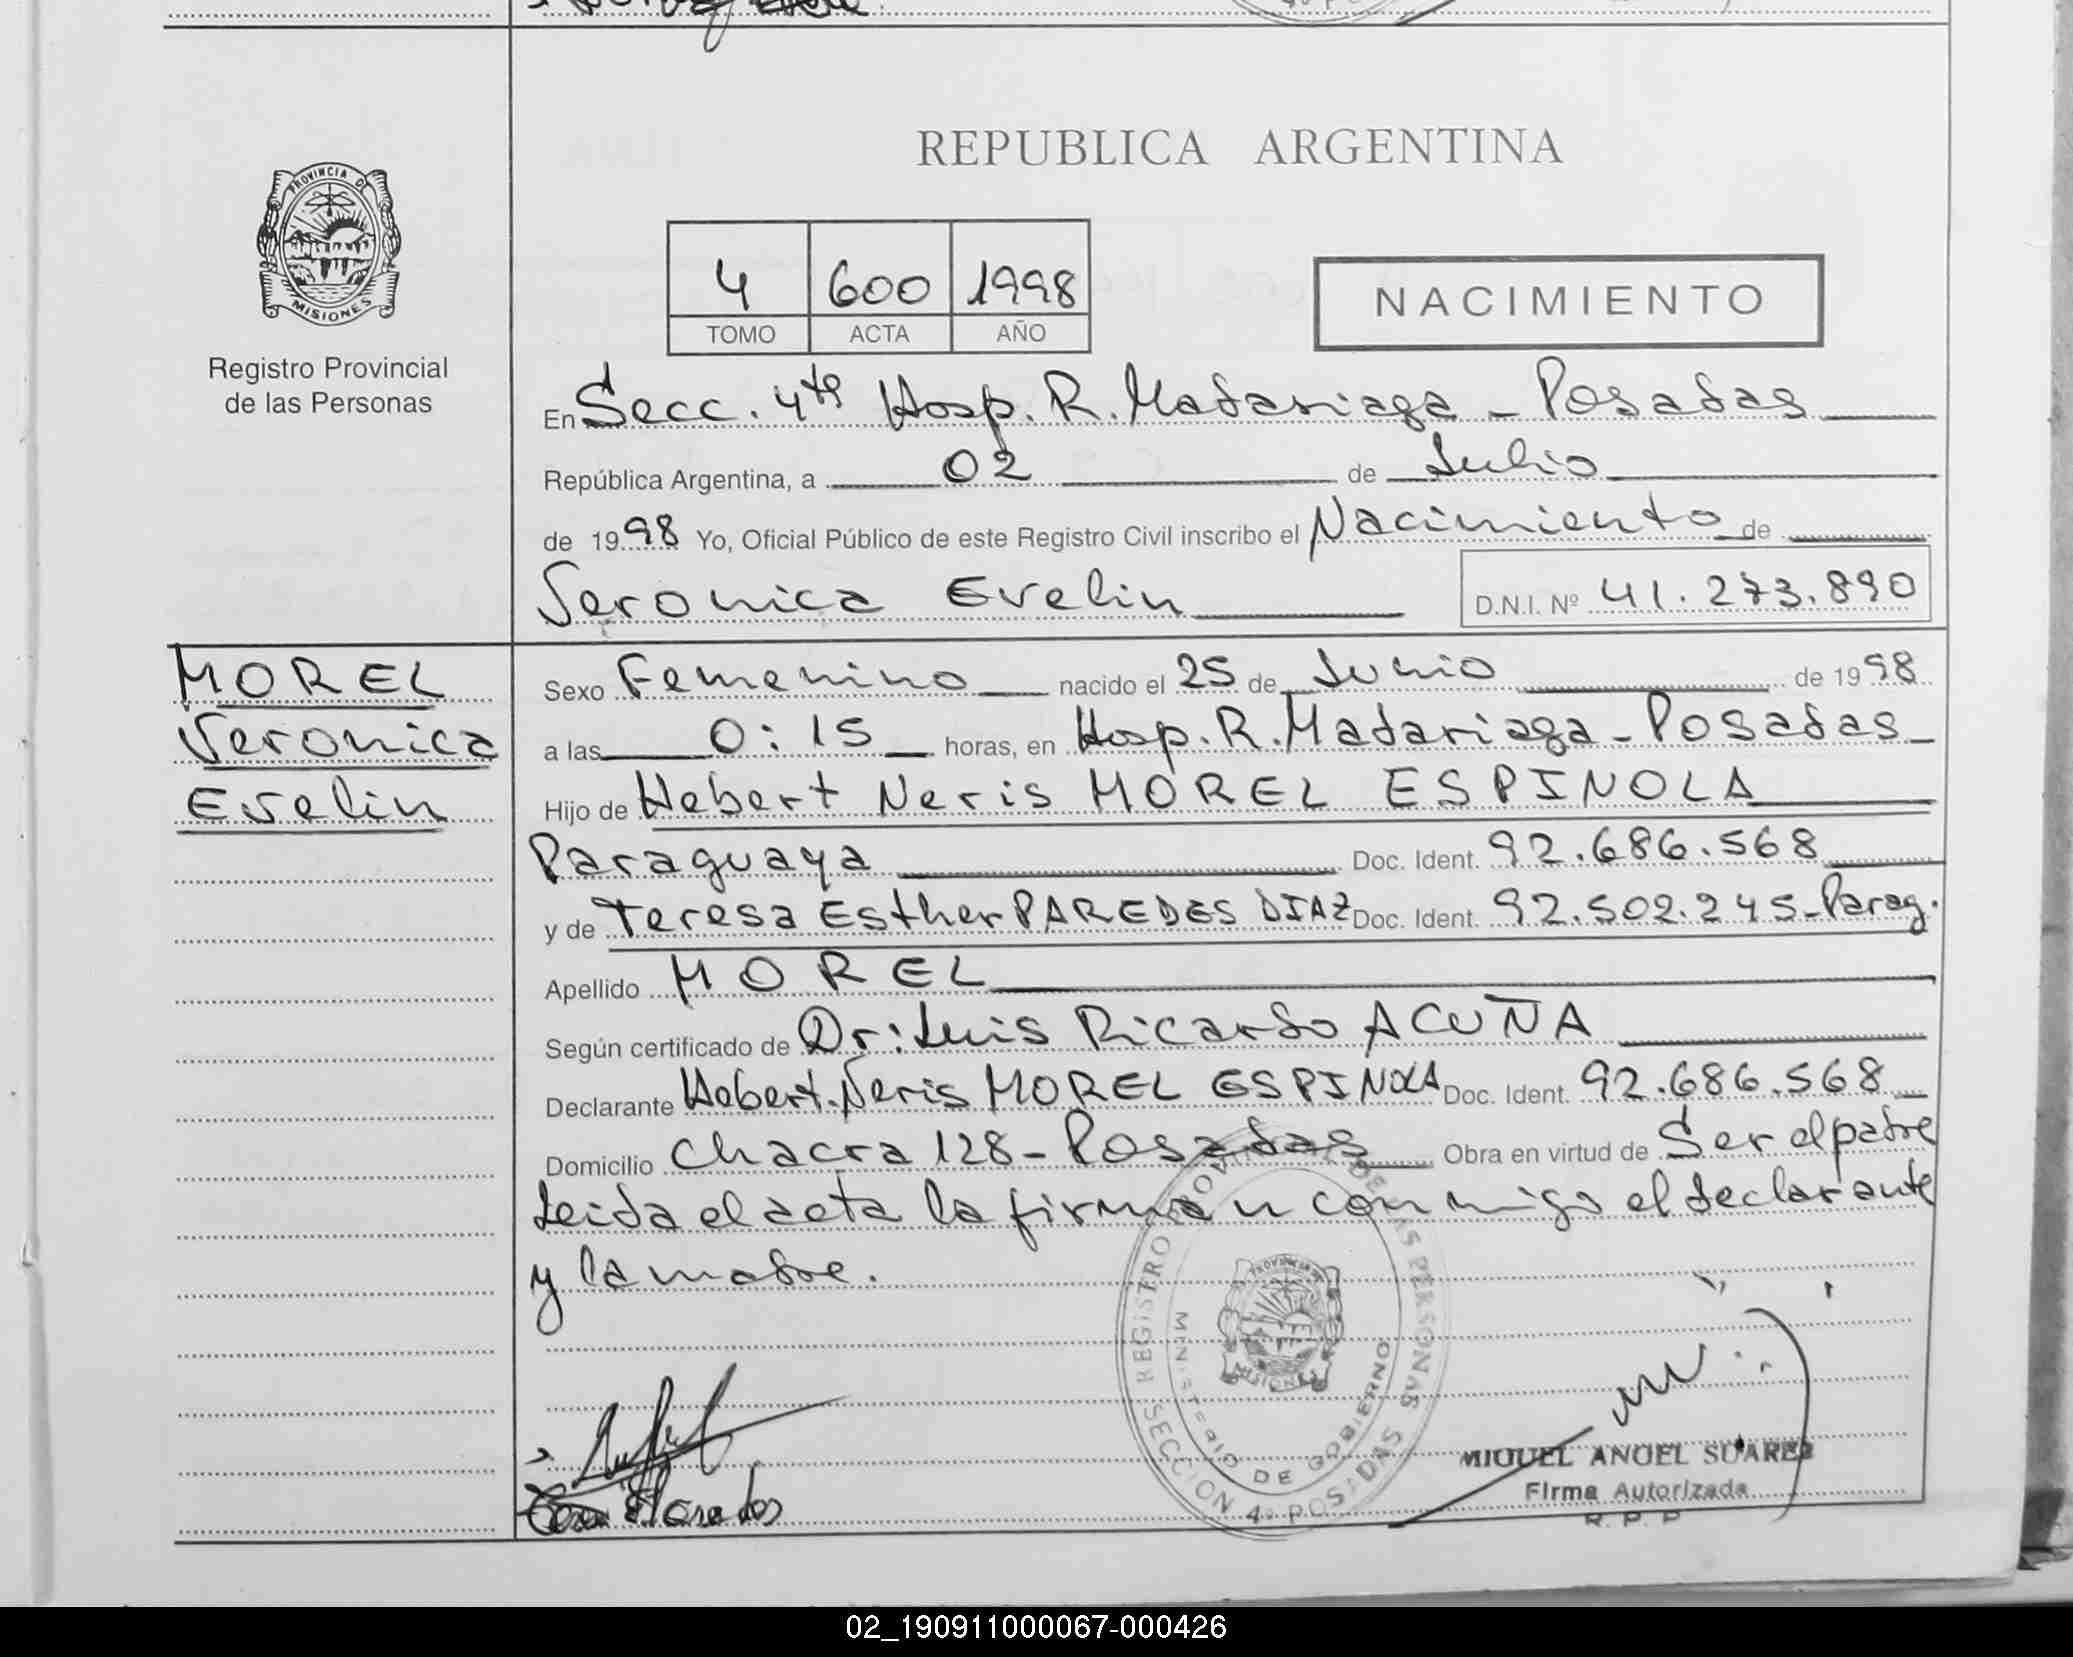 REPUBLICA ARGENTINA
PROVINCIA DE
MISIONES
Registro Provincial
de las Personas
4 600 1998
TOMO ACTA AÑO
NACIMIENTO
En Secc. 4ta Hosp. R. Madariaga - Posadas
República Argentina, a 02 de Julio
de 1998 Yo, Oficial Público de este Registro Civil inscribo el Nacimiento de
Veronica Evelin D.N.I. Nº 41.273.890
MOREL
Veronica
Evelin
Sexo Femenino nacido el 25 de Junio de 1998
a las 0:15 horas, en Hosp. R. Madariaga - Posadas -
Hijo de Hebert Neris MOREL ESPINOLA
Paraguaya Doc. Ident. 92.686.568
y de Teresa Esther PAREDES DIAZ Doc. Ident. 92.502.245 - Parag.
Apellido MOREL
Según certificado de Dr: Luis Ricardo ACUÑA
Declarante Hebert Neris MOREL ESPINOLA Doc. Ident. 92.686.568
Domicilio Chacra 128 - Posadas Obra en virtud de Ser el padre
Leida el acta la firman conmigo el declarante
y la madre.
REGISTRO PROVINCIAL DE LAS PERSONAS
SECCION 4ª POSADAS
MINISTERIO DE GOBIERNO
MISIONES
MIGUEL ANGEL SUAREZ
Firma Autorizada
R. P. P.
02_190911000067-000426